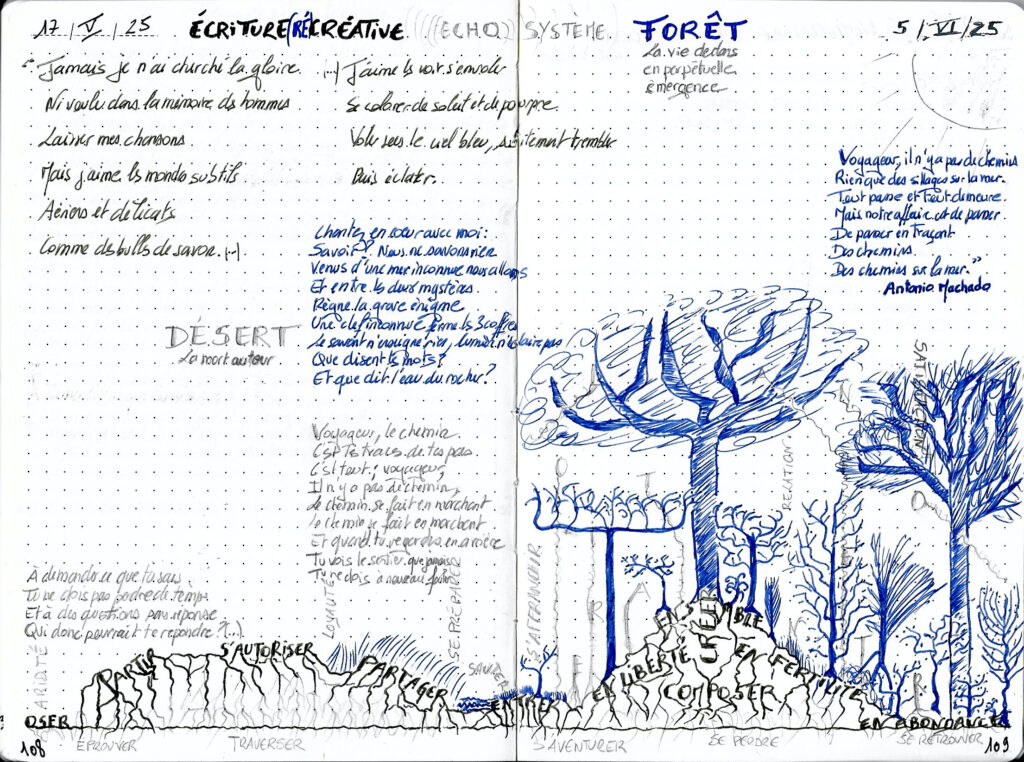 17 / V / 25
ÉCRITURE (RÉ)CRÉATIVE
(((ECHO))) SYSTÈME
FORÊT
5 / VI / 25
La vie dedans
en perpétuelle
émergence
"Jamais je n'ai cherché la gloire
Ni voulu dans la mémoire des hommes
Laisser mes chansons
Mais j'aime les mondes subtils
Aériens et délicats
Comme des bulles de savon. (...)
(...) J'aime les voir s'envoler
Se colorer de soleil et de pourpre
Voler sous le ciel bleu, subitement trembler
Puis éclater.
Chantez en cœur avec moi :
Savoir ? Nous ne savons rien
Venus d'une mer inconnue nous allons
Et entre les deux mystères
Règne la grave énigme
Une clef inconnue ferme les 3 coffres
Le savant n'enseigne rien, lumière n'éclaire pas
Que disent les mots ?
Et que dit l'eau du rocher ?
DÉSERT
La mort autour
Voyageur, le chemin
C'est les traces de tes pas
C'est tout ; voyageur,
Il n'y a pas de chemin,
Le chemin se fait en marchant
Le chemin se fait en marchant
Et quand tu regardes en arrière
Tu vois le sentier que jamais
Tu ne dois à nouveau fouler
À demander ce que tu sais
Tu ne dois pas perdre de temps
Et à des questions sans réponse
Qui donc pourrait te répondre ? (...)
Voyageur, il n'y a pas de chemins
Rien que des sillages sur la mer.
Tout passe et tout demeure.
Mais notre affaire est de passer
De passer en traçant
Des chemins
Des chemins sur la mer."
Antonio Machado
ARIDITÉ
LOYAUTÉ
SE PRÉPARER
SAUVER
RELATION
SATISFACTION
OSER
PARTIR
S'AUTORISER
PARTAGER
ENTRER
EN LIBERTÉ
ENSEMBLE
CRÉER
EN FERTILITÉ
COMPOSER
EN ABONDANCE
108
ÉPROUVER
TRAVERSER
S'AVENTURER
SE PERDRE
SE RETROUVER
109